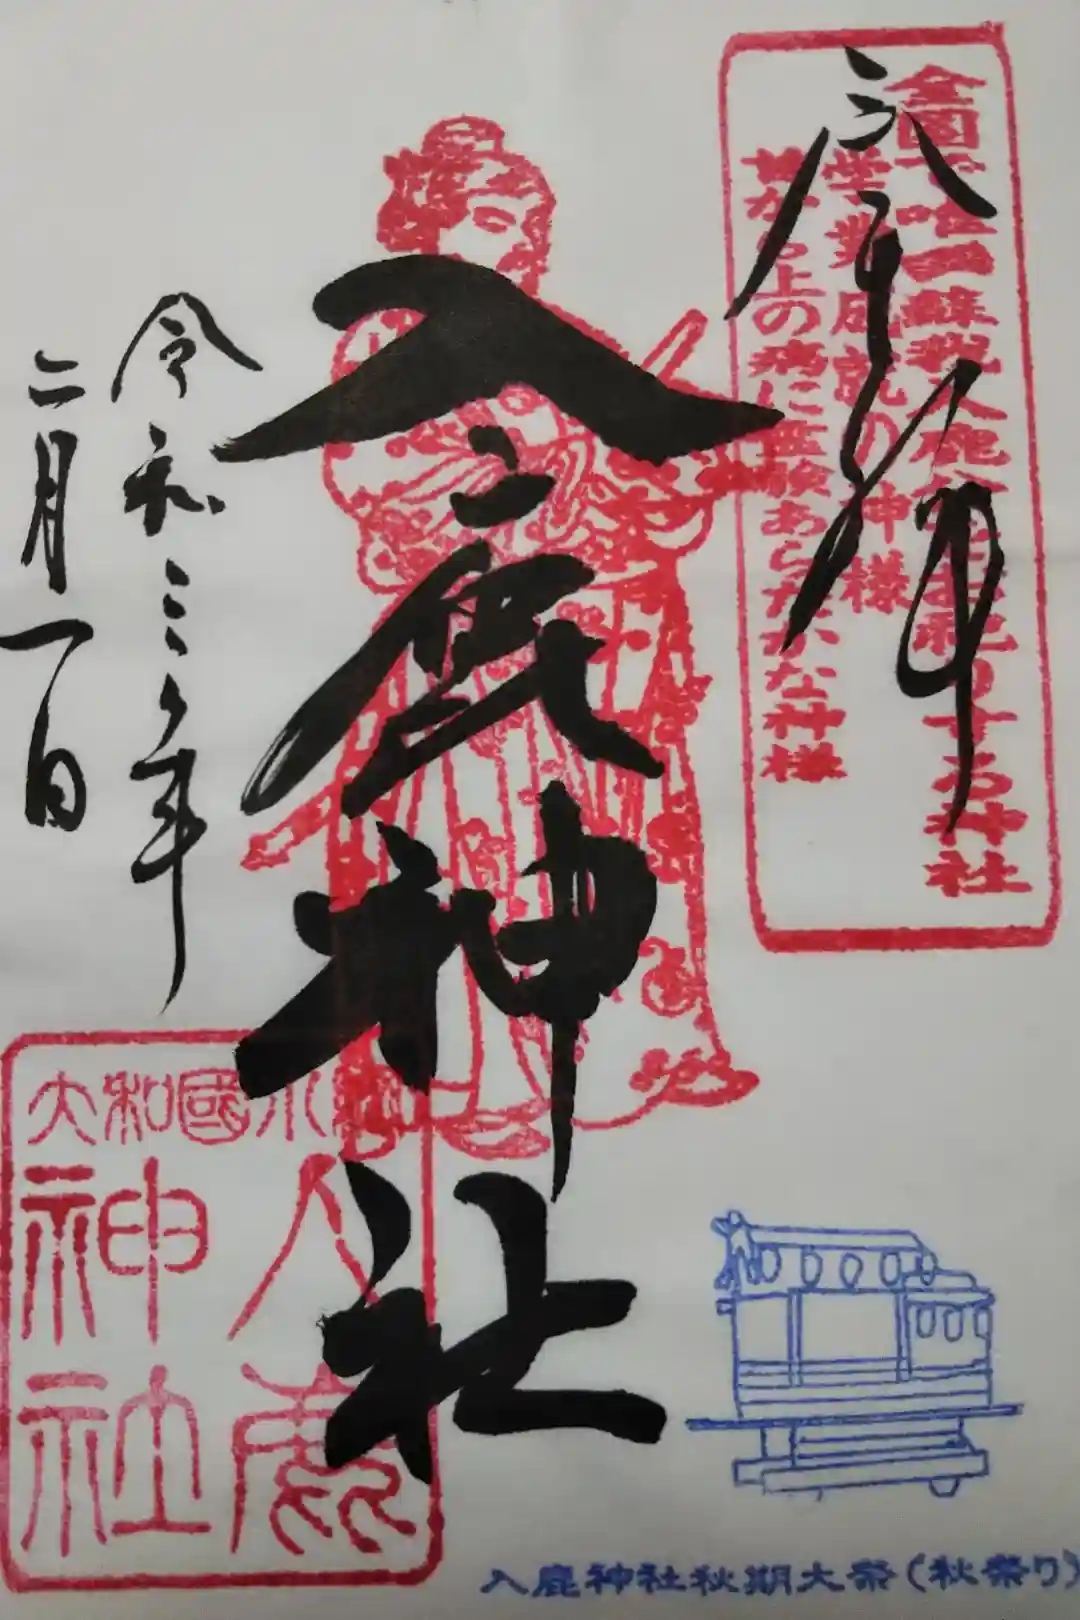 全国で唯一蘇我入鹿公をお祀りする神社
学業成就の神様
首から上の病に霊験あらたかな神様
奉拝
入鹿神社
令和三年
二月一日
大和國小綱
入鹿
神社
入鹿神社秋期大祭(秋祭り)